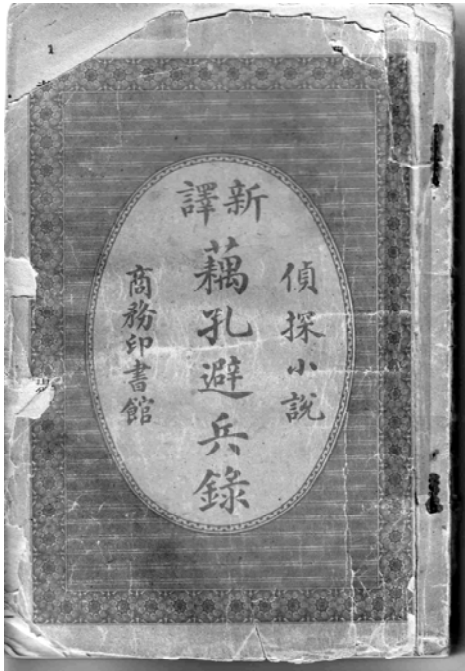 1
新譯
偵探小說
藕孔避兵錄
商務印書館